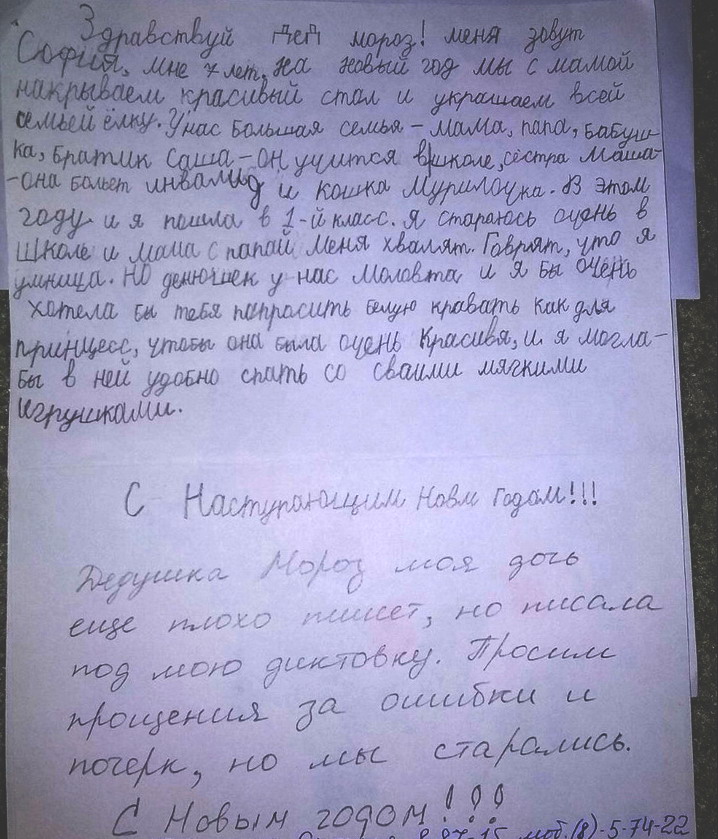 Здравствуй Дед мороз! меня зовут
София, мне 7 лет, На новый год мы с мамой
накрываем красивый стол и украшаем всей
семьей ёлку. У нас большая семья - мама, папа, бабуш-
ка, братик Саша - он учится в школе, сестра Маша -
- она больет инвалид и кошка Мурилочка. В этом
году и я пошла в 1-й класс. Я стараюсь очень в
школе и мама с папай меня хвалят. Говрят, что я
умница. Но денюшек у нас моловта и я бы очень
хотела бы тебя папрасить белую кравать как для
принцесс, чтобы она была очень красивя, и я могла-
бы в ней удобно спать со сваими мягкими
игрушками.
С Наступающим Новм годом!!!
Дедушка Мороз моя дочь
еще плохо пишет, но писала
под мою диктовку. Просим
прощения за ошибки и
почерк, но мы старались.
С Новым годом!!!
моб.(8)-5-74-22